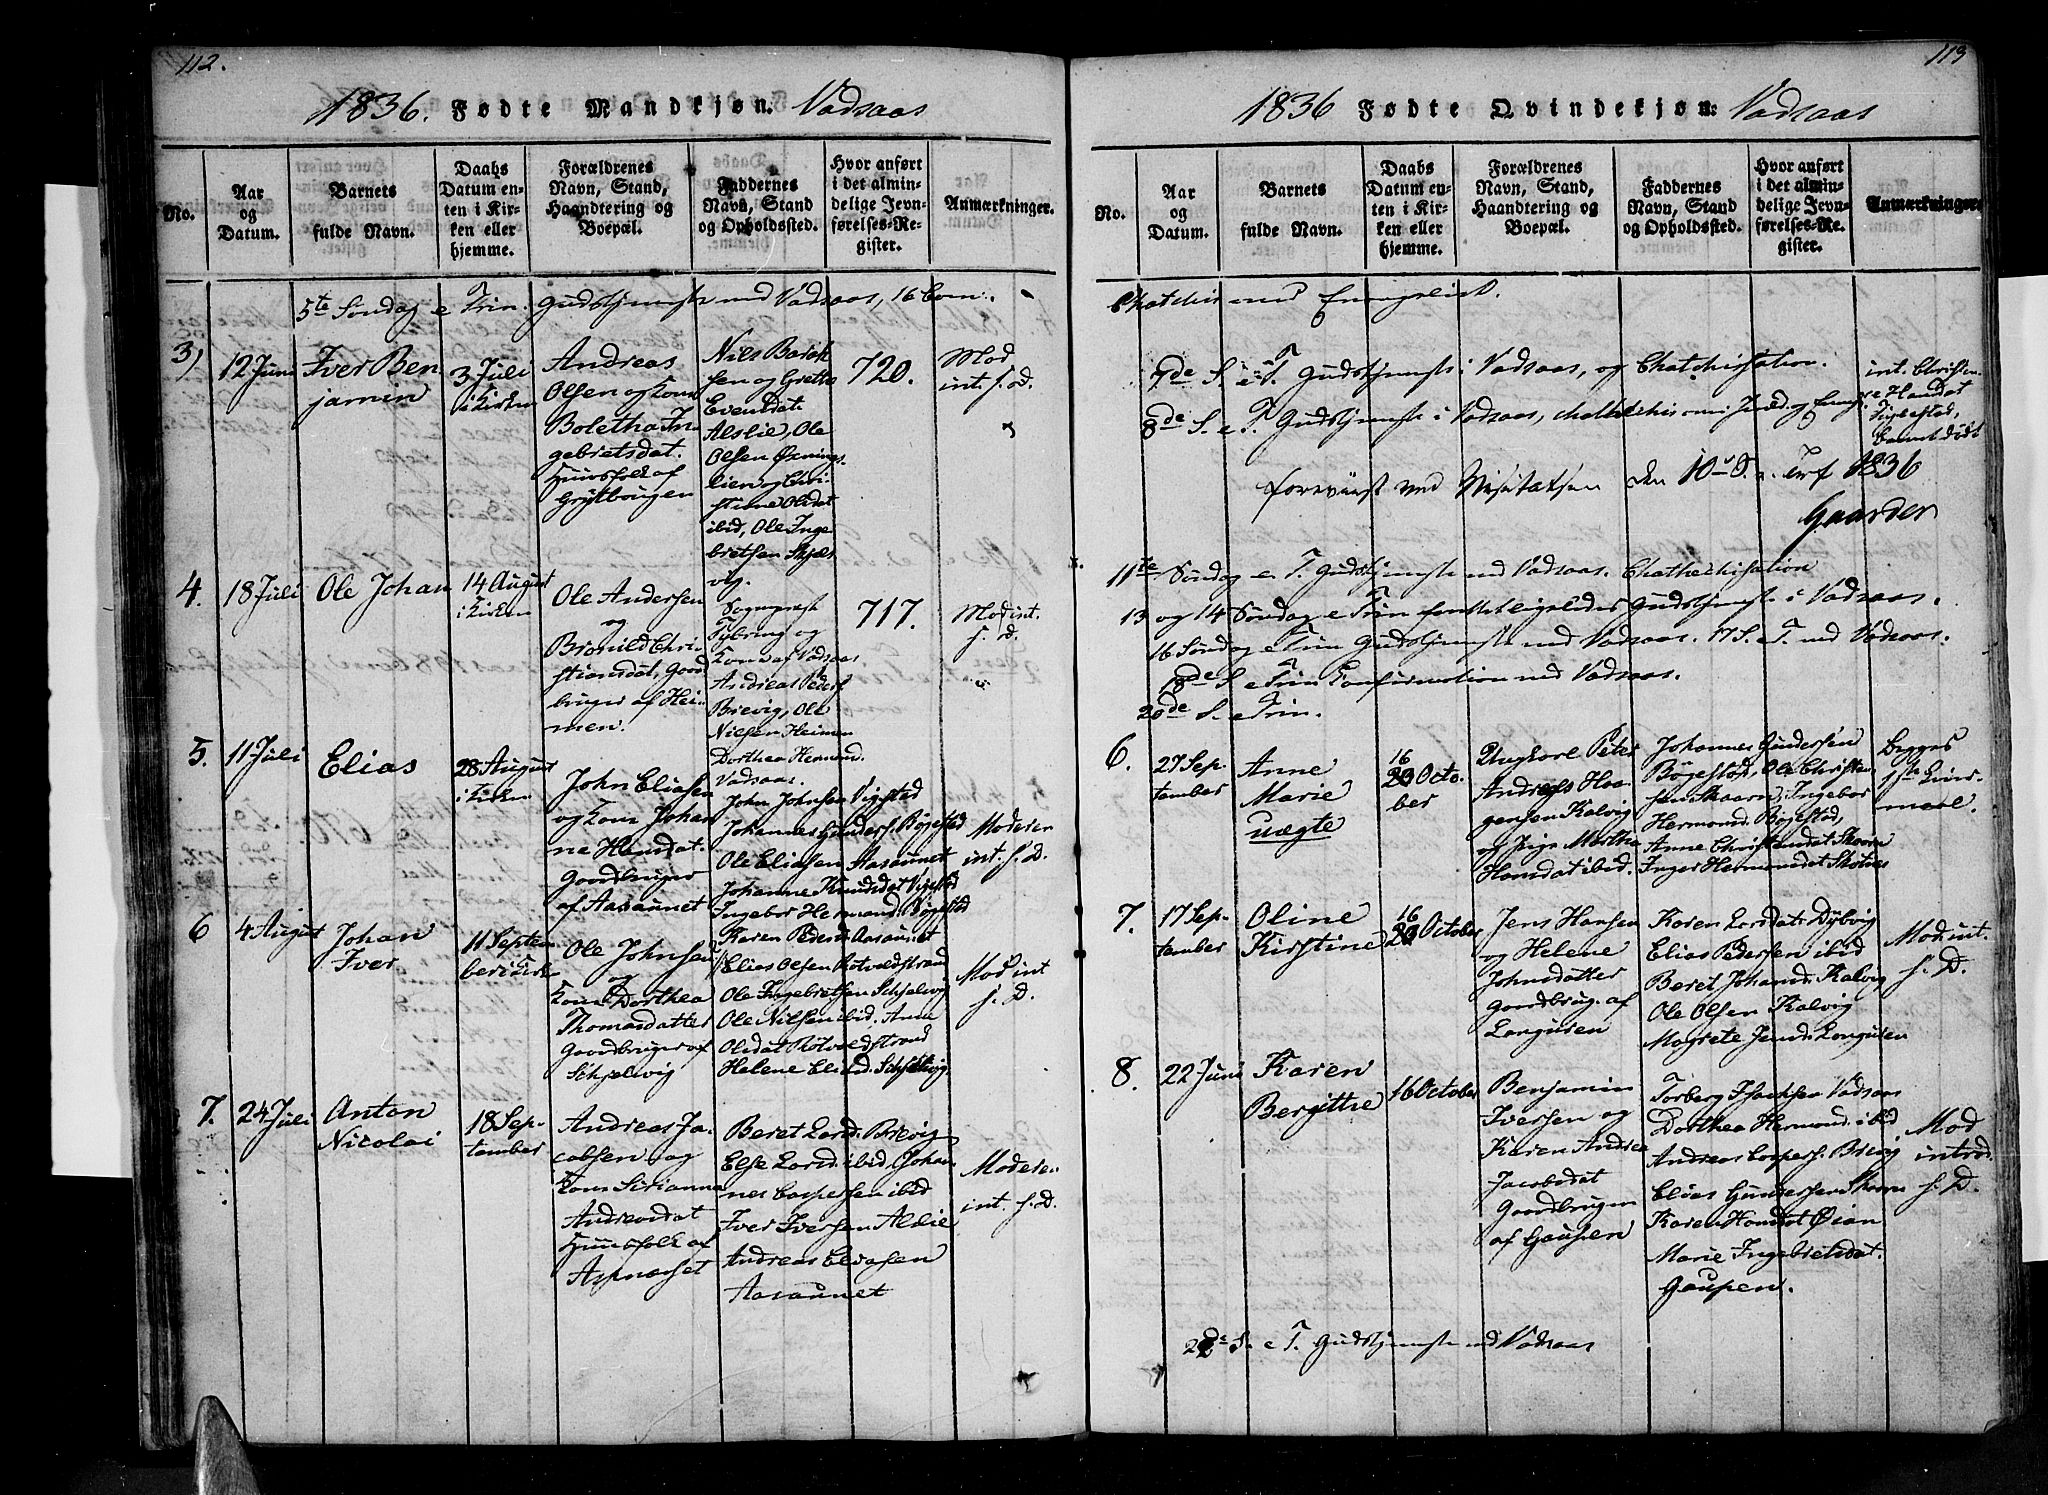 112.
1836. Fødte Mandkjøn. Vadsaas
No.
Aar
og
Datum.
Barnets
fulde Navn.
Daabs
Datum en-
ten i Kir-
ken eller
hjemme.
Forældrenes
Navn, Stand,
Haandtering og
Boepæl.
Faddernes
Navn, Stand
og Opholdssted.
Hvor anført
i det almin-
delige Jevn-
førelses-Re-
gister.
Anmærkninger.
5te Søndag e Trin. Gudstjeneste ved Vadsaas, 16 Com.
3)
12 Juni
Iver Ben
jamin
3 Juli
i Kirken
Andreas
Olsen og Kone
Boletha In
gebrigtsdat.
Huusfolk af
Grytbougen
Nils
sen og Grethe
Evendat.
Alslie, Ole
Olsen
lien og Chri
stine Olsdat
ibid, Ole Inge
bretsen Skjels
vig.
720.
Mod
int. s. d.
4.
18 Juli
Ole Johan
14 August
i Kirken
Ole Andersen
og
Bronild Chri-
stiansdat, Gaard
bruger af Hei-
men.
Sognepræst
Tybring og
Kone af Vadsaas
Andreas Peders.
Brevig, Ole
Nilsen Heimen
Dorthea Hermand.
Vadsaas.
717.
Mod int.
s. d.
5.
11 Juli
Elias
28 August
i Kirken
John Eliasen
og Kone Johan
ne Hansdat.
Gaardbruger
af Aasaunet
John Johnsen Vigestad
Johannes Gunders. Bøgestad
Ole Eliasen Aasaunet
Johanne Knudsdat Vigestad
Ingebor Hermand. Bøgestad
Karen Pedersd. Aasaunet
Moderen
int. s. D.
6
4 August
Johan
Iver
11 Septem
ber i Kirk
Ole Johnsen
og
Kone Dorthea
Thomasdatter
Gaardbruger af
Schjelvig
Elias Olsen Rotvoldstrand
Ole Ingebretsen Schjelvig
Ole Nilsen ibid. Anne
Olsdat Rotvoldstrand
Helene Eliasd. Schjelvig
Mod int
s. D.
7.
24 Juli
Anton
Nicolai
18 Sep-
tember
Andreas Ja-
cobsen og
Kone Sirianna
Andreasdat
Huusfolk af
Aspnæsset
Beret Larsd. Brevig
Else Larsd. ibid Johan
nes Caspersen ibid
Iver Iversen Alslie
Andreas Eliasen
Aasaunet
Moderen
int. s. D.
113
1836 Fødte Qvindekjøn: Vadsaas
No.
Aar
og
Datum.
Barnets
fulde Navn.
Daabs
Datum en-
ten i Kir-
ken eller
hjemme.
Forældrenes
Navn, Stand,
Haandtering og
Boepæl.
Faddernes
Navn, Stand
og Opholdssted.
Hvor anført
i det almin-
delige Jevn-
førelses-Re-
gister.
Anmærkninger
Chatechis over Evangeliet.
7de S. e T. Gudstjeneste i Vadsaas, og Chatechisation.
8de S. e T. Gudstjeneste i Vadsaas,
int. Christen
Hansdat
Barnet dødt
foreviist ved Visitatsen den 10 S. e. Tref 1836
Gaarder
11te Søndag e. T. Gudstjeneste ved Vadsaas. Chathechisation
13 og 14 Søndag e Trin forrettet ligeledes Gudstjeneste i Vadsaas.
16 Søndag e Trin Gudstjeneste ved Vadsaas. 17 S. e T. ved Vadsaas.
18de S. e Trin Confirmation ved Vadsaas.
20de S. e Trin.
6.
27 Sep-
tember
Anne
Marie
uægte
16
Octo-
ber
Ungkarl Peter
Andreas Haa-
gensen Kalvig
og Pige Martha
Hansdat ibid.
Johannes Gundersen
Bøgestad, Ole Christen
sen Skaarn, Ingebor
Hermand. Bøgestad,
Anne Christensdat Skaarn
Inger Hermansdat
Begges
1ste Leier-
maal.
7.
17 Sep-
tember
Oline
Kirstine
16
October
Jens Hansen
og Helene
Johnsdatter
Gaardbrug. af
Langusen
Karen Larsdat. Dybvig
Elias Pedersen ibid
Beret Johansd. Kalvig
Ole Olsen Kalvig
Magrete Jensd. Langusen
Mod. int.
s. D.
8.
22 Juni
Karen
Bergitthe
16 October
Benjamin
Iversen og
Karen Andrea
Jacobsdat
Gaardbruger
af Gaupen
Torberg Isachsen Vadsaas
Dorthea Hermand. ibid
Andreas Caspers. Brevig
Elias Gundersen Skaarn
Karen Hansdat Øian
Marie Ingebrietsdat.
Gaupen.
Mod
introd.
s. D.
22de S. e T. Gudstjeneste ved Vadsaas